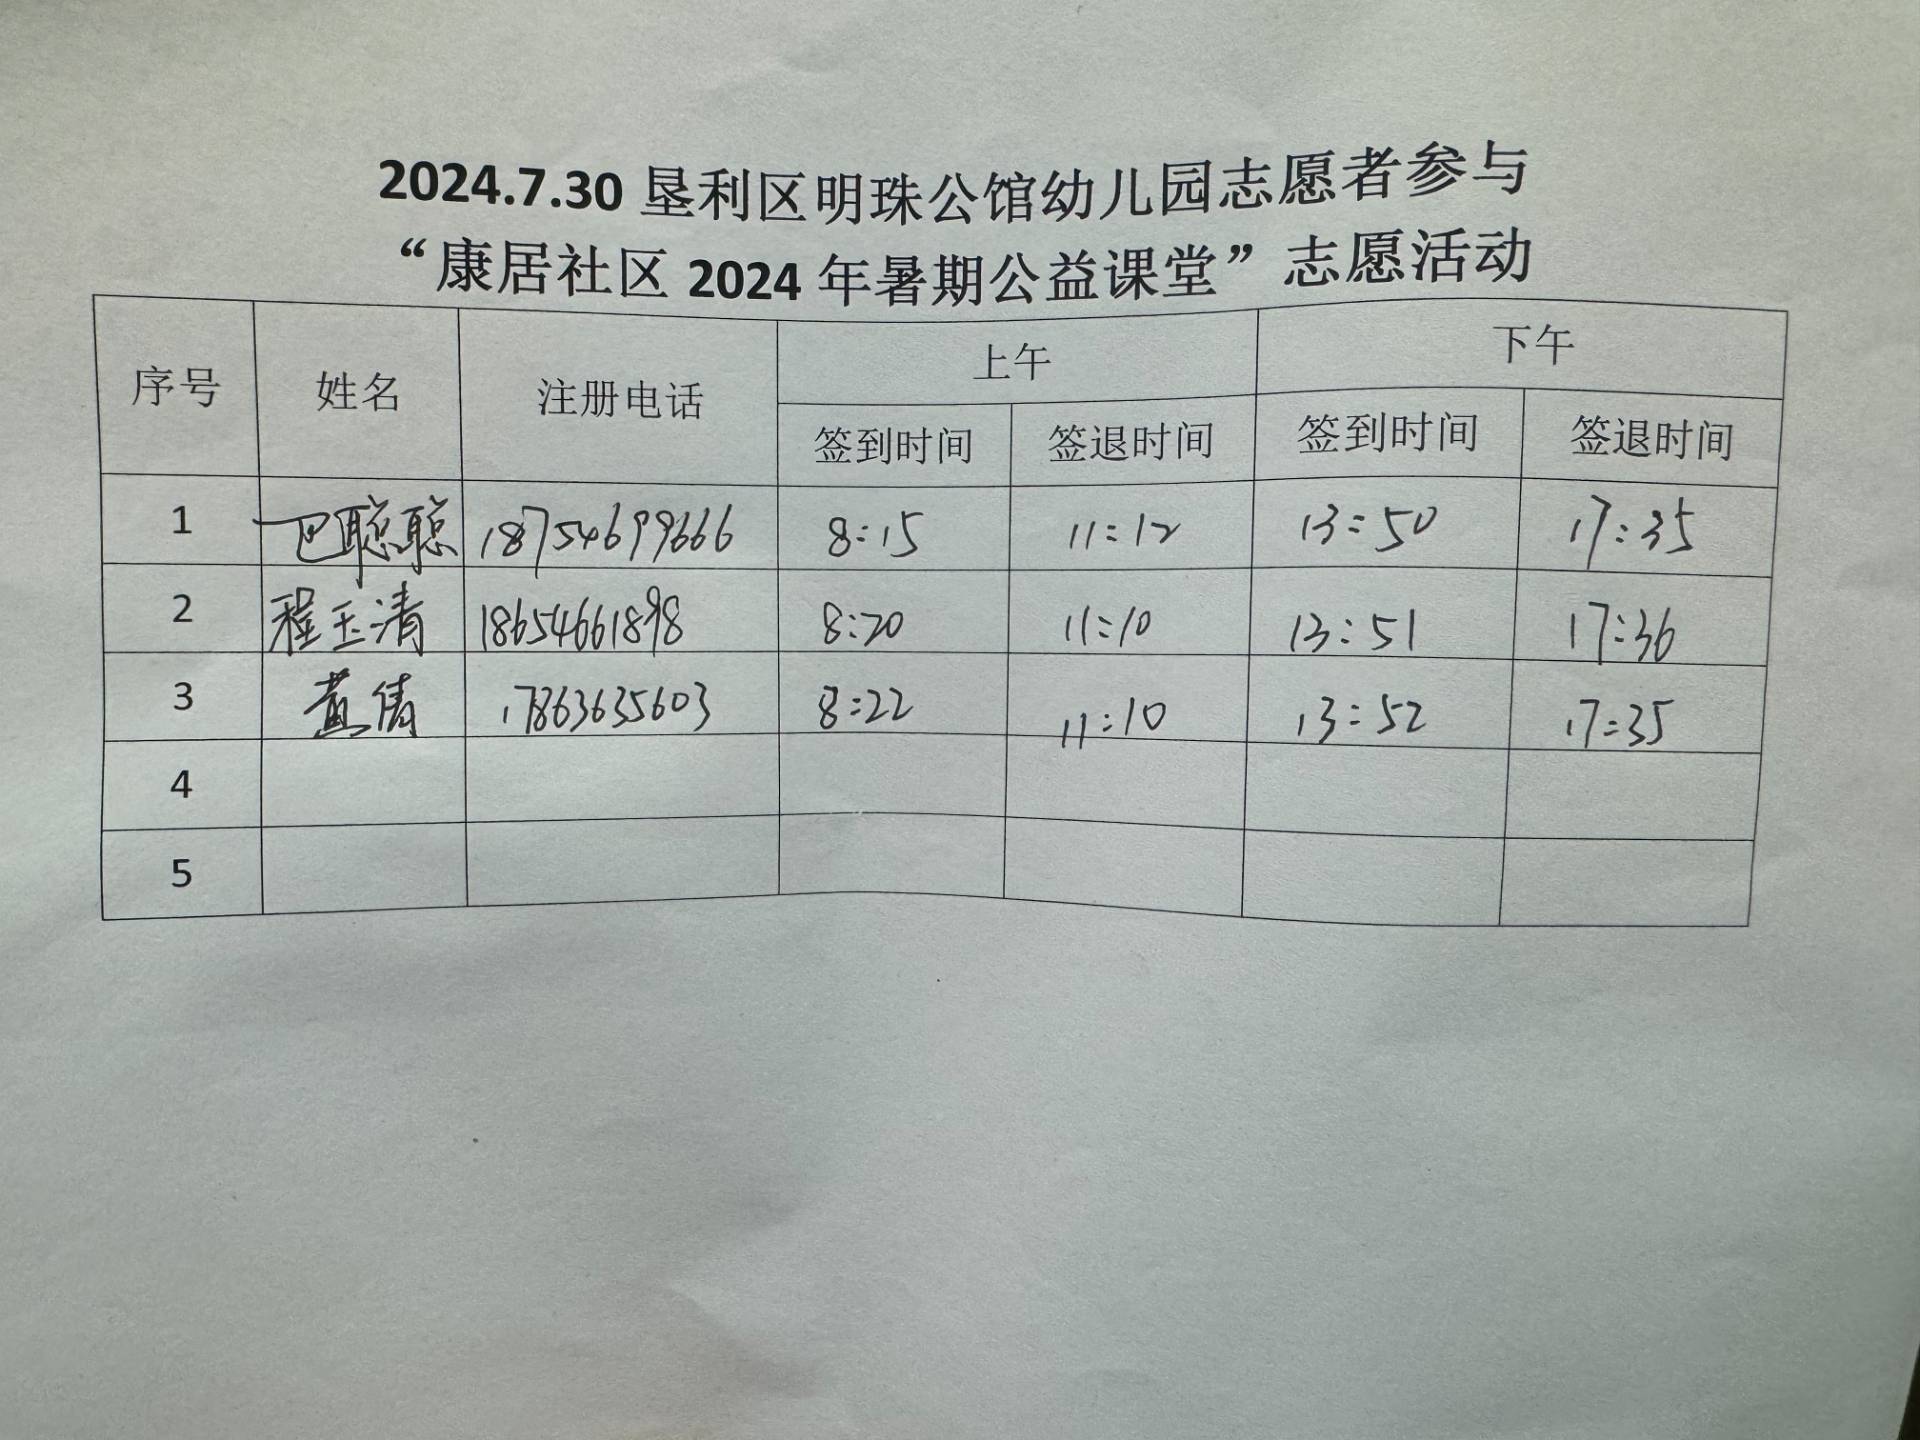 2024.7.30 垦利区明珠公馆幼儿园志愿者参与
“康居社区 2024 年暑期公益课堂”志愿活动
序号 姓名 注册电话 上午 下午
签到时间 签退时间 签到时间 签退时间
1 巴聪聪 18754699666 8:15 11:12 13:50 17:35
2 程玉清 18654661898 8:20 11:10 13:51 17:36
3 黄倩 17863635603 8:22 11:10 13:52 17:35
4
5